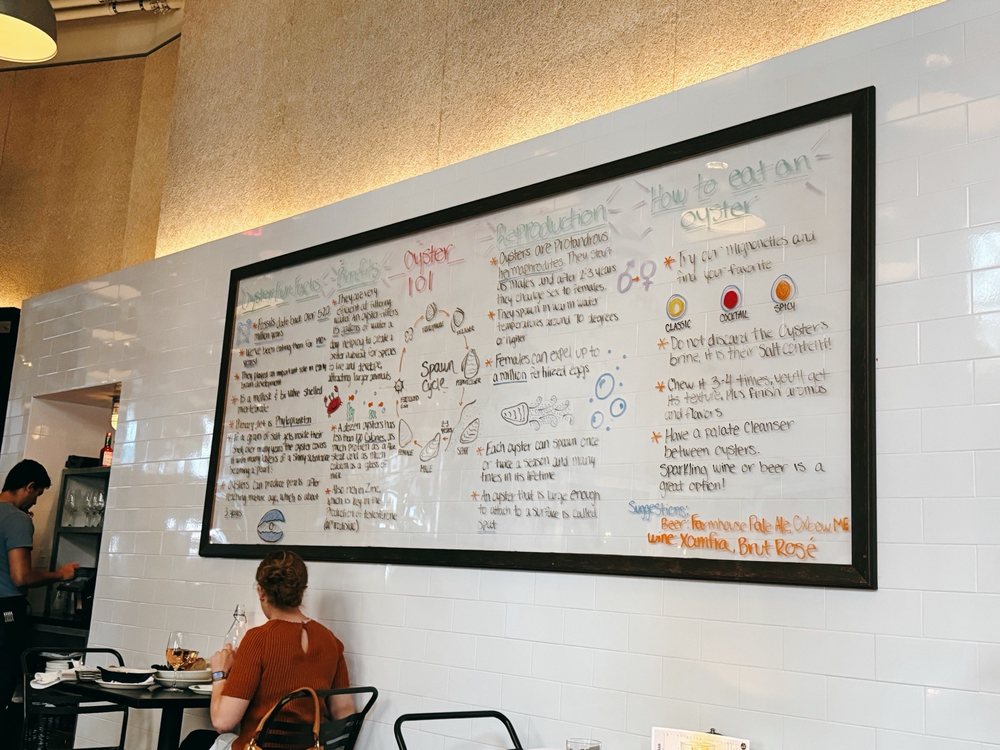 Oyster Fun Facts
Fossils date back over 520
million years
We've been eating them for
years!
They played an important role in early
brain development
Is a mollusk & bi-valve shelled
invertebrate
Primary diet is Phytoplankton
If a grain of salt gets inside their
shell over many years the oyster covers
it with many layers of a shiny substance
becoming a pearl!
Oysters can produce pearls after
reaching mature age, which is about
3 years
Benefits
They are very
efficient at filtering
water. An oyster filters
gallons of water a
day helping to create a
better habitat for species
to live and develop,
attracting larger animals
A dozen oysters has
less than Calories, as
much protein as a
steak and as much
calcium as a glass of
milk
Also rich in Zinc,
which is key in the
Production of testosterone
(aphrodisiac)
Oyster
101
Spawn
Cycle
MALE
SPAT
Reproduction
Oysters are Protandrous
hermaphrodites. They start
as males and after 2-3 years
they change sex to females.
They spawn in warm water
temperatures around 70 degrees
or higher
Females can expel up to
a million fertilized eggs
Each oyster can spawn once
or twice a season and many
times in its lifetime
An oyster that is large enough
to attach to a surface is called
Spat
How to eat an
oyster
Try our Mignonettes and
find your favorite
CLASSIC COCKTAIL SPICY
Do not discard the Oyster's
brine, it is their Salt content!
Chew it 3-4 times, you'll get
its texture, plus finish aromas
and flavors
Have a palate cleanser
between oysters.
Sparkling wine or beer is a
great option!
Suggestions:
Beer: Farmhouse Pale Ale, Oxbow ME
Wine Xamfra, Brut Rosé